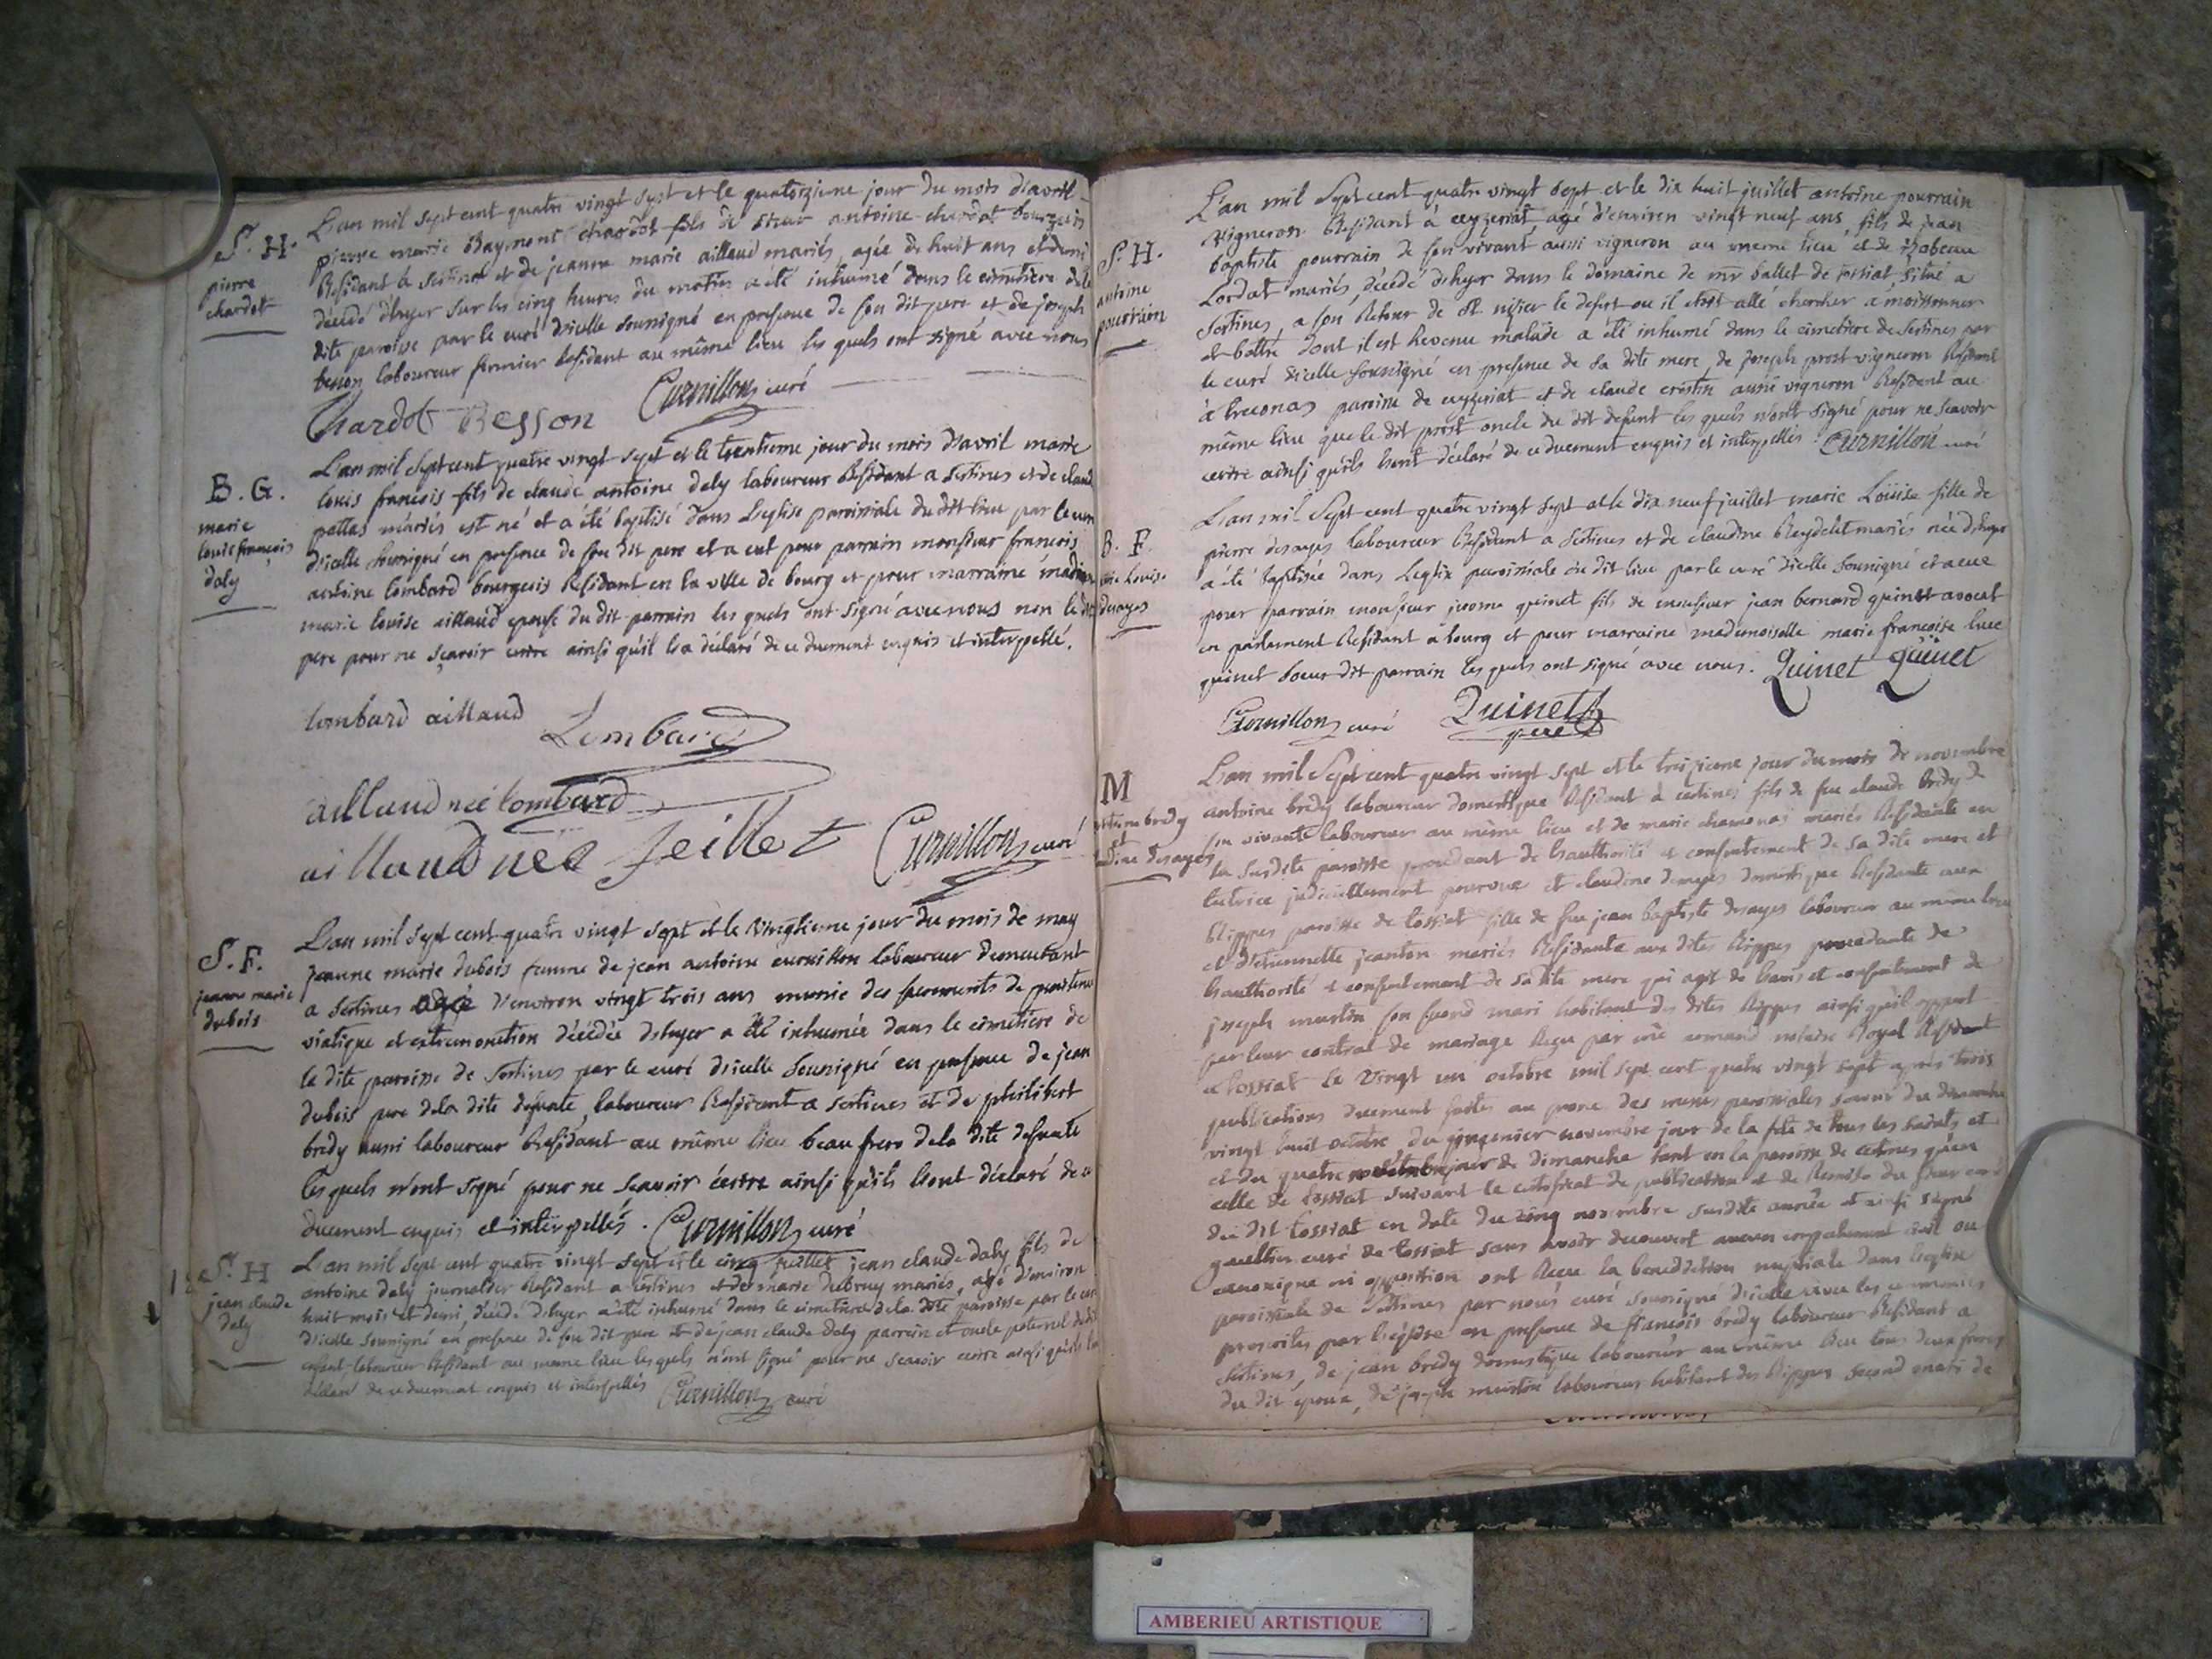 S. H.
pierre
chardot
L'an mil sept cent quatre vingt sept et le quatorzieme jour du mois d'avril
pierre marie Raymont chardot fils de sieur antoine chardot bourgeois
Residant a sertines et de jeanne marie aillaud mariés, agée de huit ans et demi
décédé d'hyer sur les cinq heures du matin a été inhumé dans le cimetiere de la
dite paroisse par le curé d'icelle soussigné en presence de son dit pere et de joseph
besson laboureur fermier Residant au même lieu les quels ont signé avec nous
Chardot Besson Curnillon curé
B. G.
marie
louis françois
daly
L'an mil sept cent quatre vingt sept et le trentieme jour du mois d'avril marie
louis françois fils de claude antoine daly laboureur Residant a sertines et de claud
pallas mariés est né et a été baptisé dans l'eglise paroissiale du dit lieu par le curé
d'icelle soussigné en presence de son dit pere et a eut pour parrain monsieur francois
antoine lombard bourgeois Residant en la ville de bourg et pour marraine madame
marie louise aillaud epouse du dit parrain les quels ont signé avec nous non le dit
pere pour ne sçavoir ecrire ainsi qu'il l'a déclaré de ce duement enquis et interpellé.
lombard aillaud Lombard
aillaud neé lombard
aillaud neé Jeillet Curnillon curé
S. F.
jeanne marie
dubois
L'an mil sept cent quatre vingt sept et le vingtieme jour du mois de may
jeanne marie dubois femme de jean antoine curnillon laboureur demeurant
a sertines agée d'environ vingt trois ans munie des sacrements de penitence
viatique et extremonction décédée d'hyer a été inhumée dans le cimetiere de
la dite paroisse de sertines par le curé d'icelle soussigné en presence de jean
dubois pere de la dite defunte, laboureur Residant a sertines et de philibert
bredy aussi laboureur Residant au même lieu beau frere de la dite defunte
les quels n'ont signé pour ne sçavoir écrire ainsi qu'ils l'ont déclaré de ce
duement enquis et interpellés. Curnillon curé
S. H
jean claude
daly
L'an mil sept cent quatre vingt sept et le cinq juillet jean claude daly fils de
antoine daly journalier Residant a sertines et de marie dubruy mariés, agé d'environ
huit mois et demi, décédé d'hyer a été inhumé dans le cimetiere de la dite paroisse par le curé
d'icelle soussigné en presence de son dit pere et de jean claude daly parrain et oncle paternel du dit
enfant, laboureur Residant au meme lieu lesquels n'ont signé pour ne scavoir ecrire ainsi qu'ils l'ont
déclaré de ce duement enquis et interpellés Curnillon curé
S. H.
antoine
pourrain
L'an mil sept cent quatre vingt sept et le dix huit juillet antoine pourrain
vigneron Residant à ceyzeriat, agé d'environ vingt neuf ans, fils de jean
baptiste pourrain de son vivant aussi vigneron au meme lieu et de izabeau
Lordat mariés, décédé d'hyer dans le domaine de mr ballet de tossiat, situé a
sertines, a son Retour de St nizier le desert ou il etoit allé chercher a moissonner
et battre dont il est Revenu malade a été inhumé dans le cimetiere de sertines par
le curé d'icelle soussigné en presence de sa dite mere, de joseph prost vigneron Residant
à treconas paroisse de ceyzeriat et de claude crestin aussi vigneron Residant au
même lieu que le dit prost oncle du dit defunt les quels n'ont signé pour ne scavoir
ecrire ainsi qu'ils l'ont déclaré de ce duement enquis et interpellés. Curnillon curé
B. F.
Louise
desayes
L'an mil sept cent quatre vingt sept et le dix neuf juillet marie Loüise fille de
pierre desayes laboureur Residant a sertines et de claudine Reydelet mariés née d'hyer
a été baptisée dans l'eglise paroissiale du dit lieu par le curé d'icelle soussigné et a eue
pour parrain monsieur jerome quinet fils de monsieur jean bernard quinet avocat
en parlement Residant à bourg et pour marraine mademoiselle marie francoise luce
quinet soeur dit parrain les quels ont signé avec nous. Quinet Quinet
Curnillon curé Quinet pere
M
antoine bredy
et
claudine desayes
L'an mil sept cent quatre vingt sept et le treizieme jour du mois de novembre
antoine bredy laboureur domestique Residant à certines fils de feu claude bredy de
son vivant laboureur au même lieu et de marie chamonai mariés Residante en
la susdite paroisse procedant de l'authorité et consentement de sa dite mere et
tutrice judiciellement pourvue et claudine desayes domestique Residante aux
Rippes paroisse de tossiat fille de feu jean baptiste desayes laboureur au meme lieu
et d'etiennette jeanton mariés Residante aux dites Rippes procedante de
l'authorité et consentement de sa dite mere qui agit de l'avis et consentement de
joseph mustin son second mari habitant des dites Rippes ainsi qu'il appert
par leur contrat de mariage Reçu par me notaire Royal Residant
a tossiat le vingt un octobre mil sept cent quatre vingt sept après trois
publications duement faites au prone des messes paroissiales sçavoir du dimanche
vingt huit octobre du premier novembre jour de la fete de tous les saints et
et du quatre novembre jour de dimanche tant en la paroisse de certines qu'en
celle de tossiat suivant le certificat de publication et de Remise du sieur curé
du dit tossiat en date du cinq novembre susdite année et ainsi signé
gaultier curé de tossiat sans avoir decouvert aucun empechement civil ou
canonique ni opposition ont Recu la benediction nuptiale dans l'eglise
paroissiale de sertines par nous curé soussigné d'icelle avec les ceremonies
prescrites par l'eglise en presence de francois bredy laboureur Residant a
sertines, de jean bredy domestique laboureur au même lieu tous deux freres
du dit epoux, de joseph mustin laboureur habitant des Rippes second mari de
AMBERIEU ARTISTIQUE